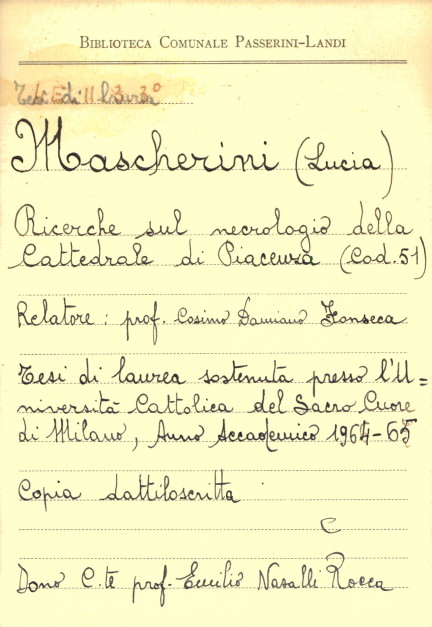 BIBLIOTECA COMUNALE PASSERINI-LANDI
Tesi di laurea
Mascherini (Lucia)
Ricerche sul necrologio della
Cattedrale di Piacenza (Cod. 51)
Relatore: prof. Cosimo Damiano Fonseca
Tesi di laurea sostenuta presso l'U=
niversità Cattolica del Sacro Cuore
di Milano, Anno Accademico 1964-65
Copia dattiloscritta
C
Dono C.te prof. Emilio Nasalli Rocca